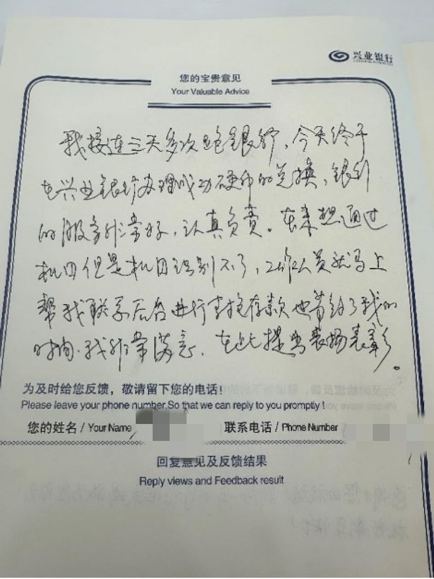 兴业银行
您的宝贵意见
Your Valuable Advice
我接连三天多次跑银行，今天终于
在兴业银行办理成功硬币的兑换，银行
的服务非常好，认真负责。本来想通过
机田但是机田识别不了，工作人员就马上
帮我联系后台进行直接存款也节约了我的
时间。我非常满意。在此提出表扬表彰。
为及时给您反馈，敬请留下您的电话！
Please leave your phone number.So that we can reply to you promptly !
您的姓名 / Your Name
联系电话 / Phone Number
回复意见及反馈结果
Reply views and Feedback result